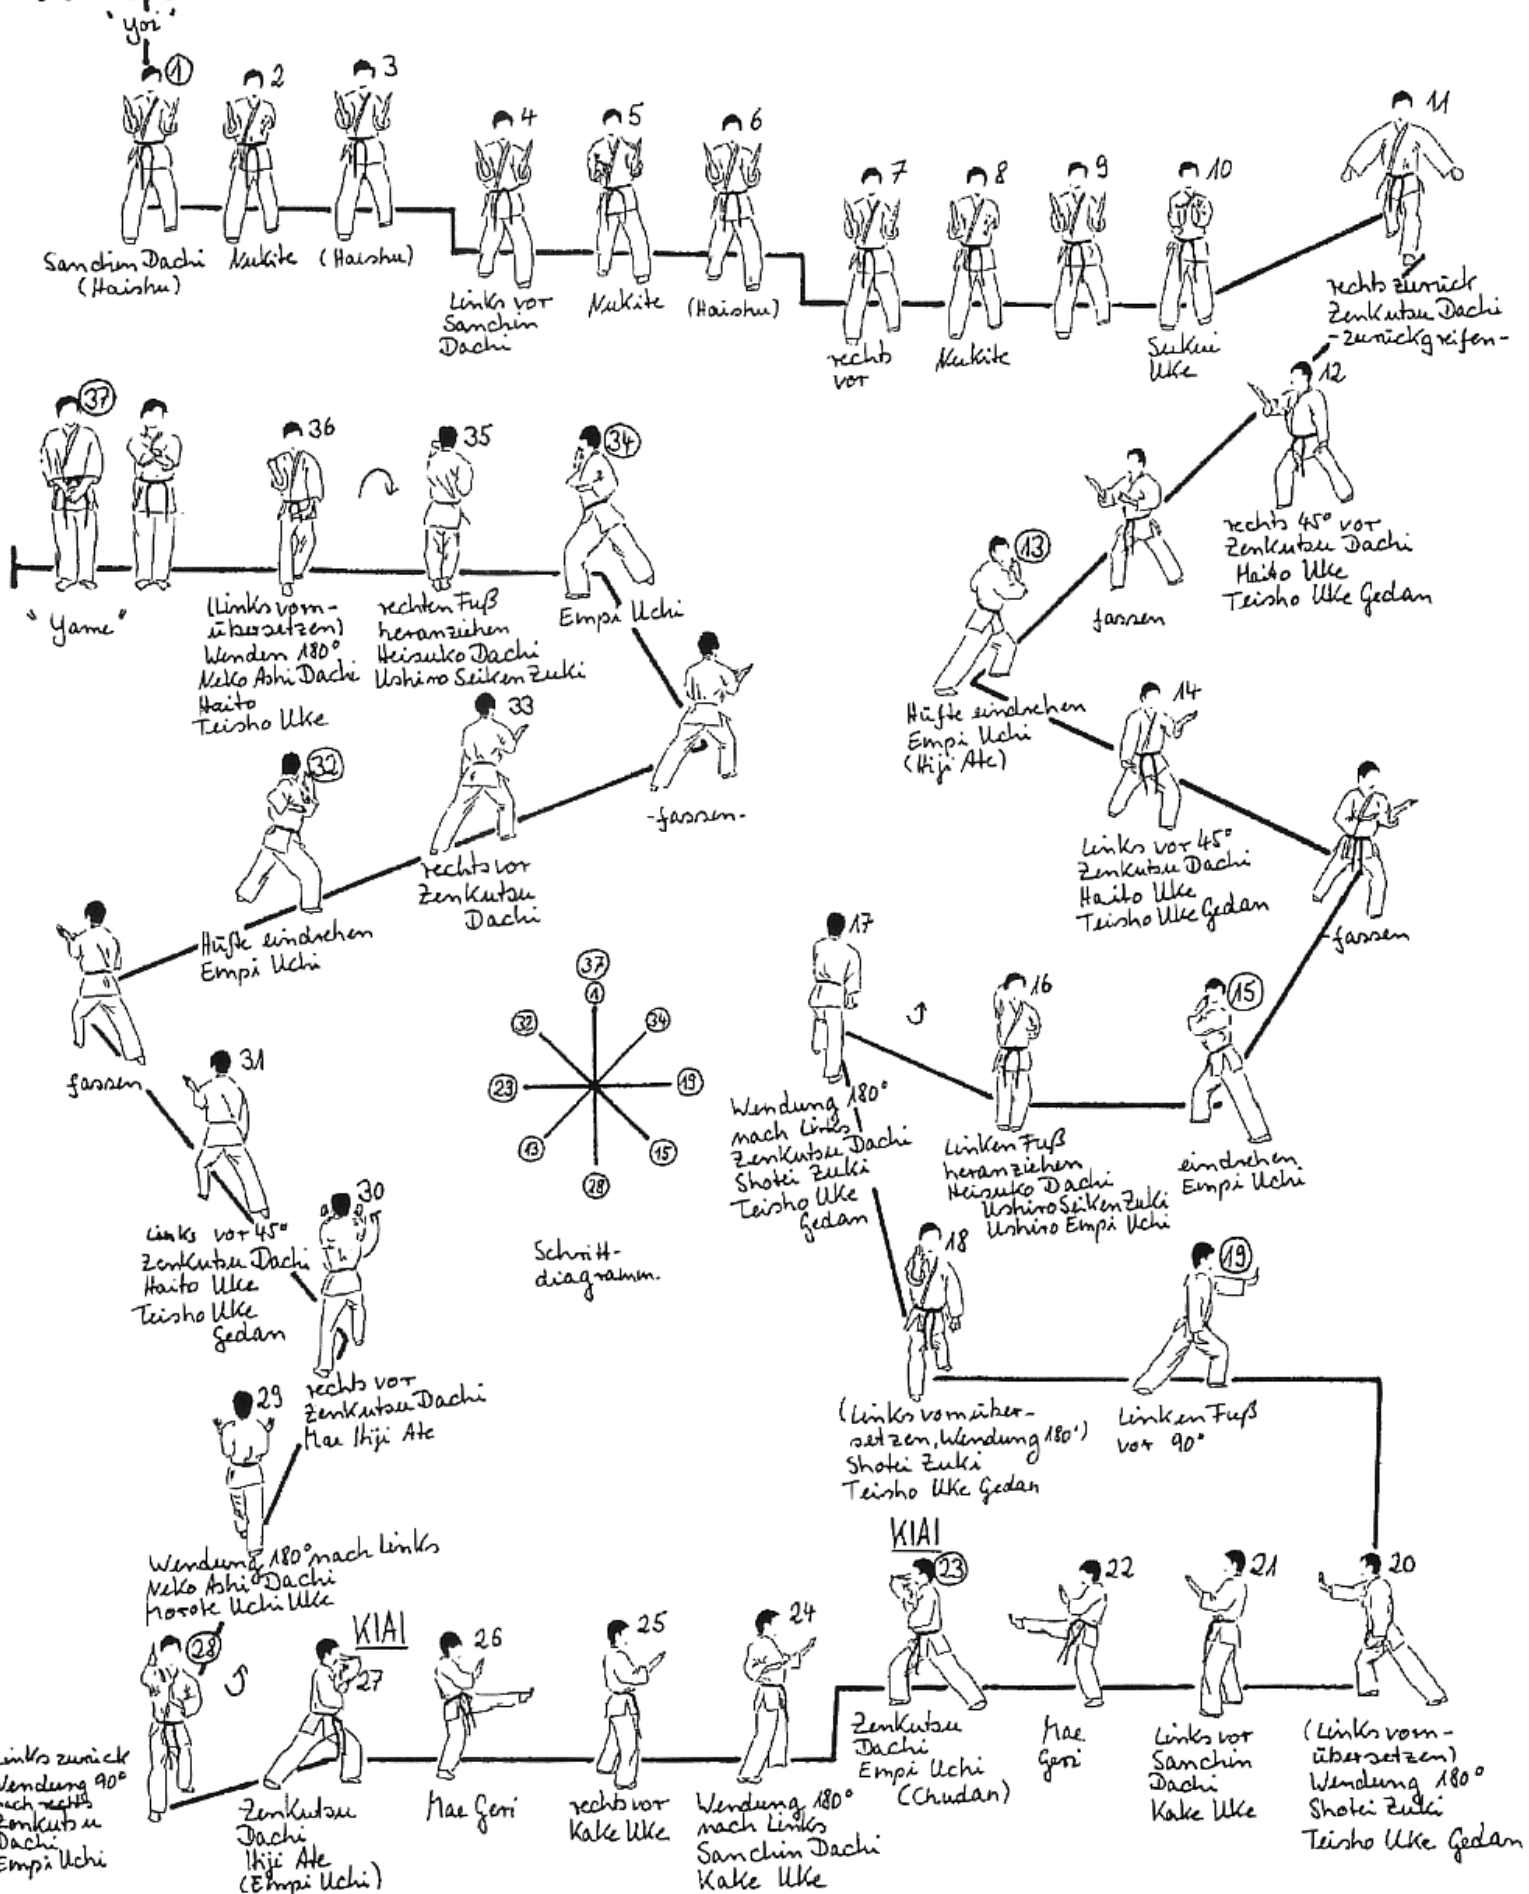 "Yoi"
1
2
3
4
5
6
7
8
9
10
11
Sanchin Dachi
(Haishu)
Nukite
(Haishu)
Links vor
Sanchin
Dachi
Nukite
(Haishu)
rechts
vor
Nukite
Sukui
Uke
rechts zurück
Zenkutsu Dachi
-zurückgreifen-
12
rechts 45° vor
Zenkutsu Dachi
Haito Uke
Teisho Uke Gedan
fassen
13
Hüfte eindrehen
Empi Uchi
(Hiji Ate)
14
Links vor 45°
Zenkutsu Dachi
Haito Uke
Teisho Uke Gedan
-fassen
15
eindrehen
Empi Uchi
16
Linken Fuß
heranziehen
Heisuko Dachi
Ushiro Seiken Zuki
Ushiro Empi Uchi
17
Wendung 180°
nach Links
Zenkutsu Dachi
Shotei Zuki
Teisho Uke
Gedan
18
(Links vornüber-
setzen, Wendung 180°)
Shotei Zuki
Teisho Uke Gedan
19
Linken Fuß
vor 90°
20
(Links vorn-
übersetzen)
Wendung 180°
Shotei Zuki
Teisho Uke Gedan
21
Links vor
Sanchin
Dachi
Kake Uke
22
Mae
Geri
KIAI
23
Zenkutsu
Dachi
Empi Uchi
(Chudan)
24
Wendung 180°
nach Links
Sanchin Dachi
Kake Uke
25
rechts vor
Kake Uke
26
Mae Geri
KIAI
27
Zenkutsu
Dachi
Hiji Ate
(Empi Uchi)
28
Links zurück
Wendung 90°
nach rechts
Zenkutsu
Dachi
Empi Uchi
29
Wendung 180° nach Links
Neko Ashi Dachi
Morote Uchi Uke
30
rechts vor
Zenkutsu Dachi
Mae Hiji Ate
31
Links vor 45°
Zenkutsu Dachi
Haito Uke
Teisho Uke
Gedan
fassen
32
Hüfte eindrehen
Empi Uchi
33
rechts vor
Zenkutsu
Dachi
-fassen-
34
Empi Uchi
35
rechten Fuß
heranziehen
Heisuko Dachi
Ushiro Seiken Zuki
36
(Links vorn-
übersetzen)
Wenden 180°
Neko Ashi Dachi
Haito
Teisho Uke
37
"Yame"
37
1
32
34
23
19
13
15
28
Schritt-
diagramm.